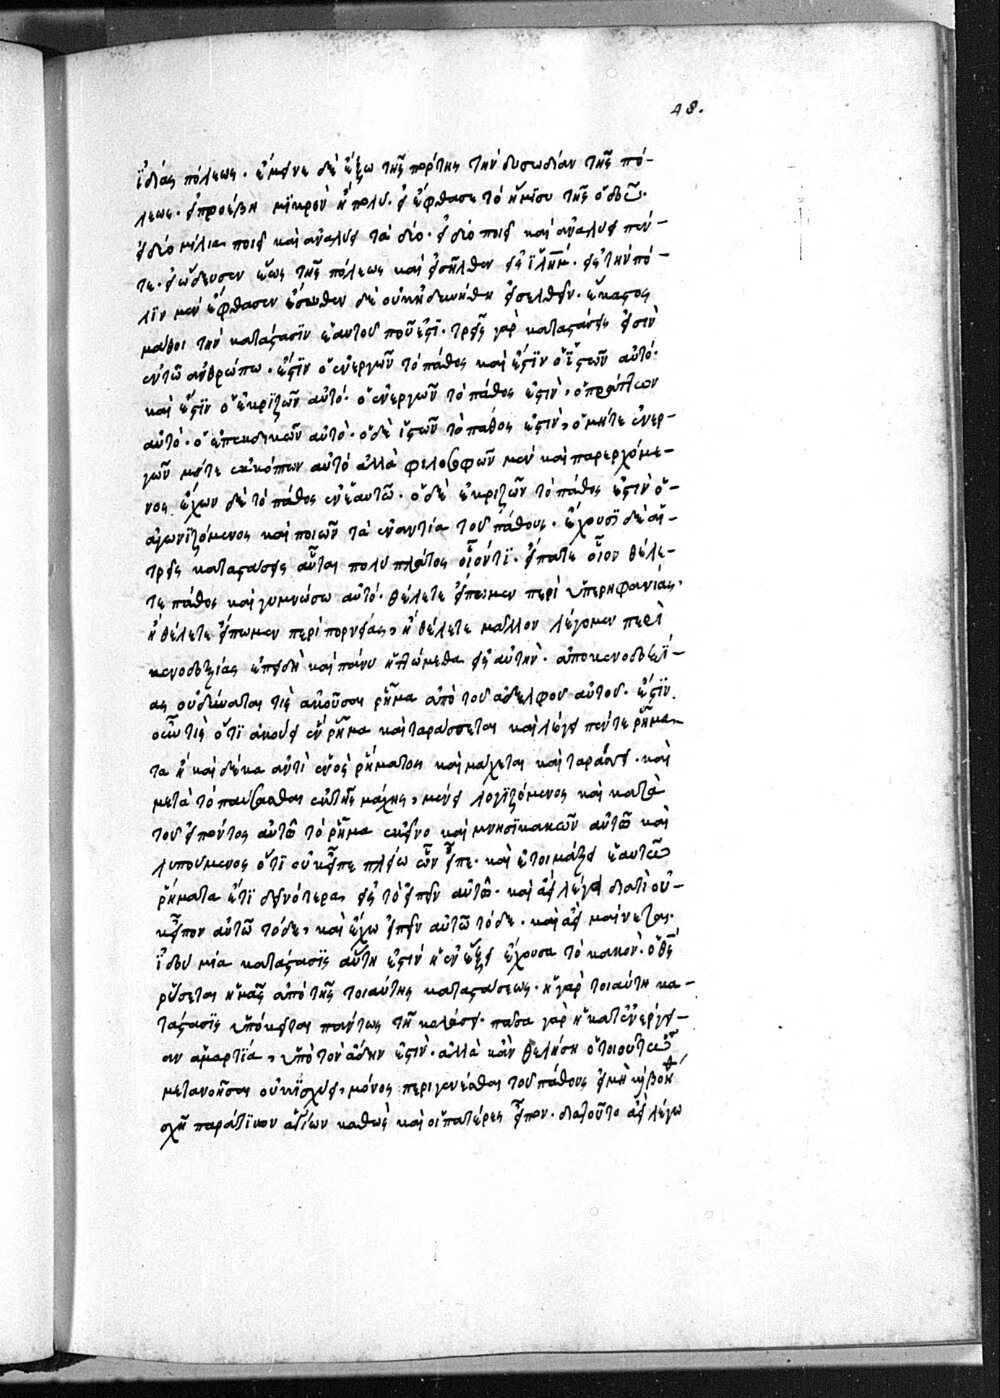 48.
ἰδίας πόλεως. ἔμεινε δὲ ἔξω τῆς πόρτης τὴν δυσωδίαν τῆς πό-
λεως. ἢ προέβη μικρὸν ἢ πολύ. ἢ ἔφθασε τὸ ἥμισυ τῆς ὁδοῦ.
ἢ δύο μίλια ποιεῖ καὶ ἀναλύει τὰ δύο. ἢ δύο ποιεῖ καὶ ἀναλύει πέν-
τε. ἢ ὤδευσεν ἕως τῆς πόλεως καὶ εἰσῆλθεν εἰς ἱλῆμ. εἰς τὴν πό-
λιν μὲν ἔφθασεν ἔσωθεν δὲ οὐκ ἠδυνήθη εἰσελθεῖν. ἕκαστος
μάθοι τὴν κατάστασιν ἑαυτοῦ ποῦ ἐστι. τρεῖς γὰρ καταστάσεις εἰσὶν
ἐν τῷ ἀνθρώπω. ἔστιν ὁ ἐνεργῶν τὸ πάθος καὶ ἔστιν ὁ ἱστῶν αὐτό.
καὶ ἔστιν ὁ ἐκριζῶν αὐτό. ὁ ἐνεργῶν τὸ πάθος ἐστὶν, ὁ πράττων
αὐτό. ὁ ἐπεκδικῶν αὐτὸ. ὁ δὲ ἱστῶν τὸ πάθος ἐστὶν, ὁ μήτε ἐνερ-
γῶν μήτε ἐκκόπτων αὐτό ἀλλὰ φιλοσοφῶν μὲν καὶ παρερχόμε-
νος ἔχων δὲ τὸ πάθος ἐν ἑαυτῶ. ὁ δὲ ἐκριζῶν τὸ πάθος ἐστὶν ὁ-
ἀγωνιζόμενος καὶ ποιῶν τὰ ἐναντία τοῦ πάθους. ἔχουσι δὲ αἱ-
τρεῖς καταστάσεις αὗται πολὺ πλάτος οἱονεί τι. εἴπατε οἷον θέλε-
τε πάθος καὶ γυμνώσω αὐτό. θέλετε εἴπωμεν περὶ ὑπερηφανίας.
ἢ θέλετε εἴπωμεν περὶ πορνείας, ἢ θέλετε μᾶλλον λέγομεν περὶ
κενοδοξίας ἐπειδὴ καὶ πάνυ ἡττώμεθα εἰς αὐτήν. ἀπὸ κενοδοξί-
ας οὐ δύναται τὶς ἀκοῦσαι ῥῆμα ἀπὸ τοῦ ἀδελφοῦ αὐτοῦ. ἔστιν
οὖν τὶς ὅτι ἀκούει ἓν ῥῆμα καὶ ταράσσεται καὶ λέγει πέντε ῥήμα-
τα ἢ καὶ δέκα ἀντὶ ἑνὸς ῥήματος καὶ μάχεται καὶ ταράσσει. καὶ
μετὰ τὸ παύσασθαι ἐκ τῆς μάχης, μένει λογιζόμενος καὶ κατὰ
τοῦ εἰπόντος αὐτῶ τὸ ῥῆμα ἐκεῖνο καὶ μνησικακῶν αὐτῶ καὶ
λυπούμενος ὅτι οὐκ εἶπε πλείω ὧν εἶπε. καὶ ἑτοιμάζει ἑαυτῶ
ῥήματα ἔτι δεινότερα εἰς τὸ εἰπεῖν αὐτῶ. καὶ ἀεὶ λέγει διατὶ οὐ-
κ εἶπον αὐτῶ τόδε, καὶ ἔχω εἰπεῖν αὐτῶ τόδε. καὶ ἀεὶ μαίνεται.
ἰδοὺ μία κατάστασις αὕτη ἐστὶν ἡ ἐν ἕξει ἔχουσα τὸ κακόν. ὁ θεὸς
ῥύσεται ἡμᾶς ἀπὸ τῆς τοιαύτης καταστάσεως. ἡ γὰρ τοιαύτη κα-
τάστασις ὑπόκειται πάντως τῆ κολάσει. πᾶσα γὰρ ἡ κατ' ἐνέργει-
αν ἁμαρτία, ὑπὸ τὸν ἅδην ἐστίν. ἀλλὰ κἂν θελήση ὁ τοιοῦτος
μετανοῆσαι οὐκ ἰσχύει, μόνος περιγενέσθαι τοῦ πάθους εἰ μὴ κỳ βοήθ
σχῆ παρά τινων ἁγίων καθὼς καὶ οἱ πατέρες εἶπον. διατοῦτο ἀεὶ λέγω